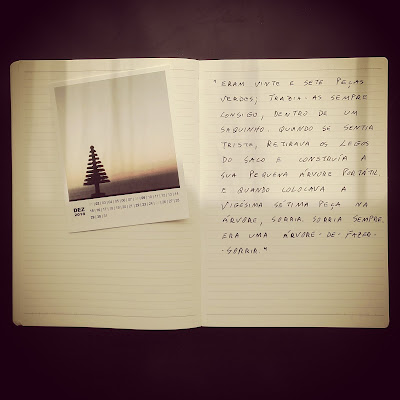 DEZ
"ERAM VINTE E SETE PEÇAS
VERDES; TRAZIA-AS SEMPRE
CONSIGO, DENTRO DE UM
SAQUINHO. QUANDO SE SENTIA
TRISTE, RETIRAVA OS LEGOS
DO SACO E CONSTRUÍA A
SUA PEQUENA ÁRVORE PORTÁTIL
E QUANDO COLOCAVA A
VIGÉSIMA SÉTIMA PEÇA NA
ÁRVORE, SORRIA. SORRIA SEMPRE.
ERA UMA ÁRVORE-DE-FAZER-
-SORRIR."